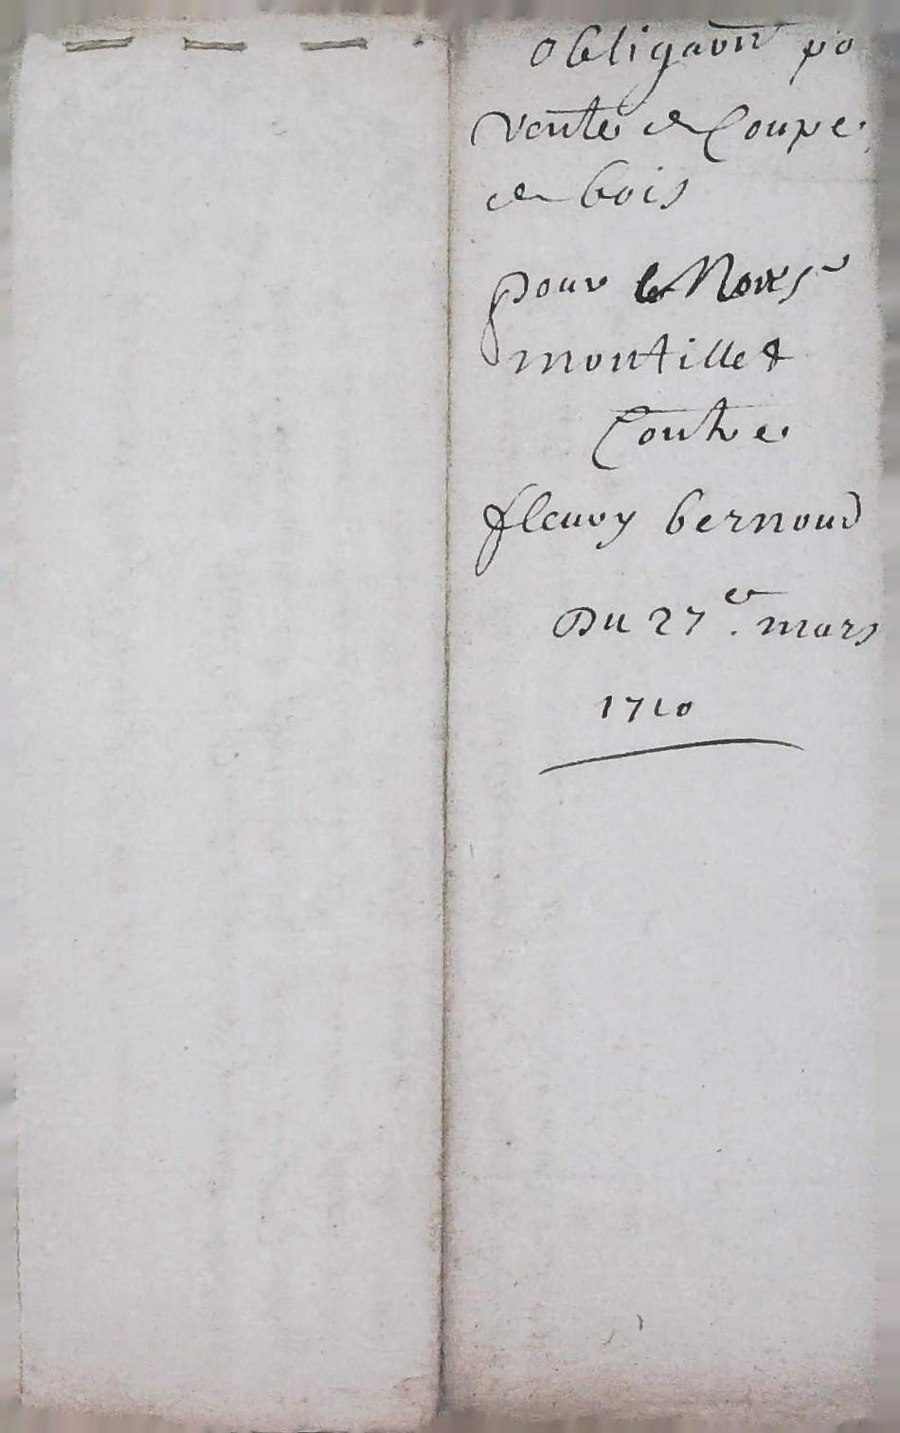 Obligaõn po
vente de Coupe
de bois
pour le
montillet
Contre
fleury bernoud
Du 27e. mars
1710